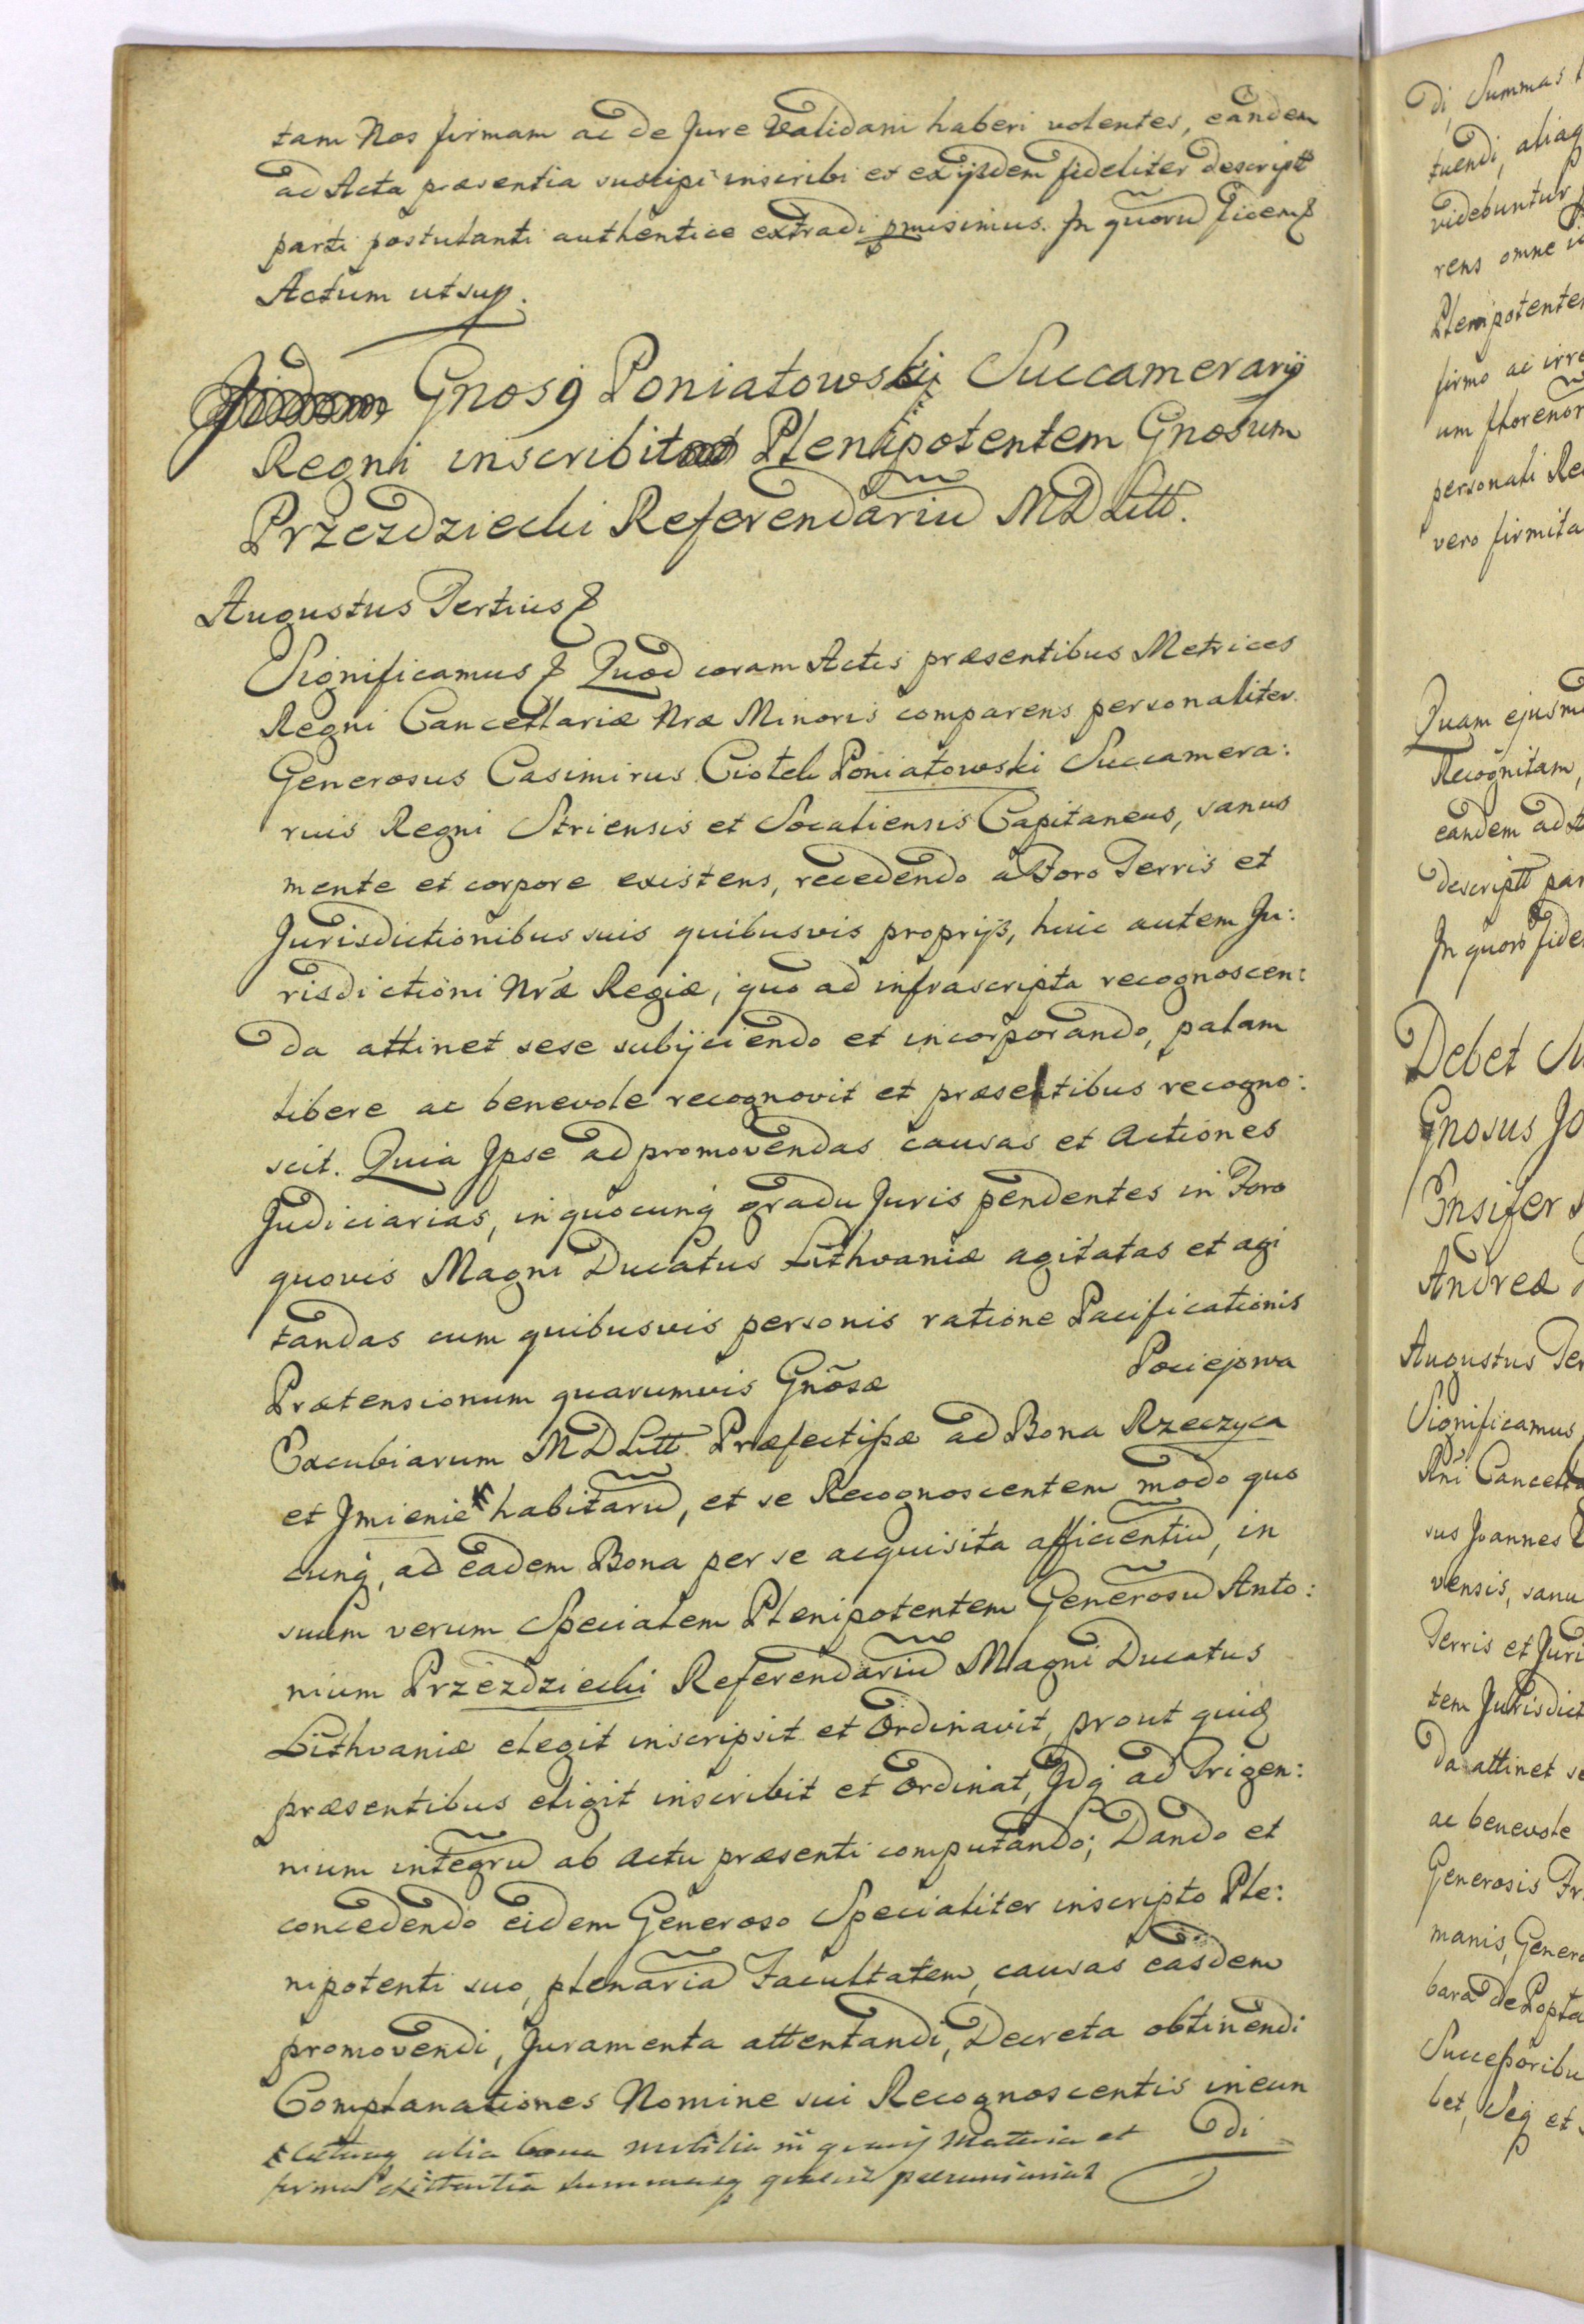 tam Nos firmam ac de Jure validam haberi volentes, eandem
ad Acta præsentia suscipi inscribi et ex ijsdem fideliter descript
parti postulanti authentice extradi pmisimus. In quoru fidem
Actum ut sup.
Gnos9 Poniatowskij Succamerarij
Regni inscribit Plenipotentem Gnosum
Przezdziecki Referendariu MDLitt.
Augustus Tertius
Significamus Quod coram Actis præsentibus Metrices
Regni Cancellariæ Nræ Minoris comparens personaliter
Generosus Casimirus Ciołek Poniatowski Succamera:
rius Regni Striensis et Socaliensis Capitaneus, sanus
mente et corpore existens, recedendo a Foro Terris et
Jurisdictionibus suis quibusvis proprijs, huic autem Ju:
risdictioni Nræ Regiæ, quo ad infrascripta recognoscen:
da attinet sese subijciendo et incorporando, palam
libere ac benevole recognovit et præsentibus recogno:
scit. Quia Ipse ad promovendas causas et Actiones
Judiciarias, in quocunq gradu Juris pendentes in Foro
quovis Magni Ducatus Lithvaniæ agitatas et agi
tandas cum quibusvis personis ratione Pacificationis
Prætensionum quarumvis Gnosæ Pociejowa
Excubiarum MDLitt. Præfectißæ ad Bona Rzeczyca
et Jmienie habitaru, et se Recognoscentem modo quo
cunq, ad eadem Bona per se acquisita afficientiu, in
suum verum Specialem Plenipotentem Generosu Anto:
nium Przezdziecki Referendariu Magni Ducatus
Lithvaniæ elegit inscripsit et Ordinavit, prout quidq
præsentibus eligit inscribit et Ordinat, Idq ad Trigen:
nium integru ab actu præsenti computando; Dando et
concedendo eidem Generoso Specialiter inscripto Ple:
nipotenti suo, plenaria Facultatem, causas easdem
promovendi, Juramenta attentandi, Decreta obtinendi
Complanationes Nomine sui Recognoscentis ineun
di
alia bona mobilia in materia et
summasq pecuniarias
di, Summas
tuendi, aliaq
videbuntur
rens omne
Plenipotente
firmo ac irre
um florenor
personali Re
vero firmita
Quam ejusm
Recognitam,
eandem ad
descriptt par
In quoru fide
Debet
Gnosus Jo
Ensifer
Andreæ
Augustus Ter
Significamus
Rni Cancella
sus Joannes
vensis, sanu
Terris et Juri
tem Jurisdict
da attinet se
ac benevole
Generosis Fr
manis, Genero
bara de Lopta
Succeßoribu
bet, Seq et